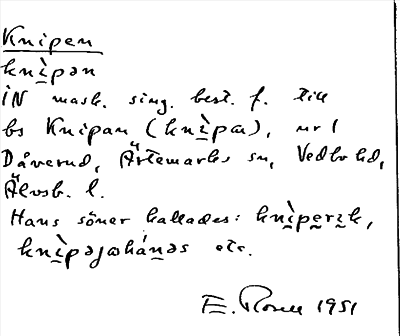 Knipen
knı̀pən
IN mask. sing. best. f. till
bs Knipan (knı̀pa), nr 1
Dåverud, Ärtemarks sn, Vedbo hd,
Älvsb. l.
Hans söner kallades: knı̀perık,
knı̀pəjohánəs etc.
E. 1951